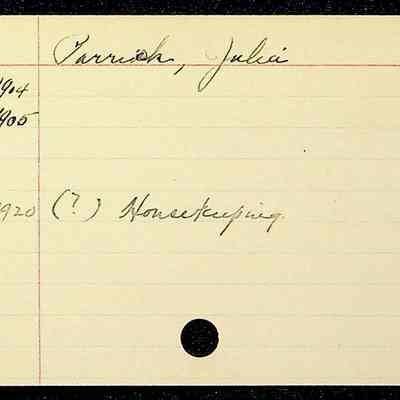 Parrick, Julia
1904
1905
1920 (?) Housekeeping